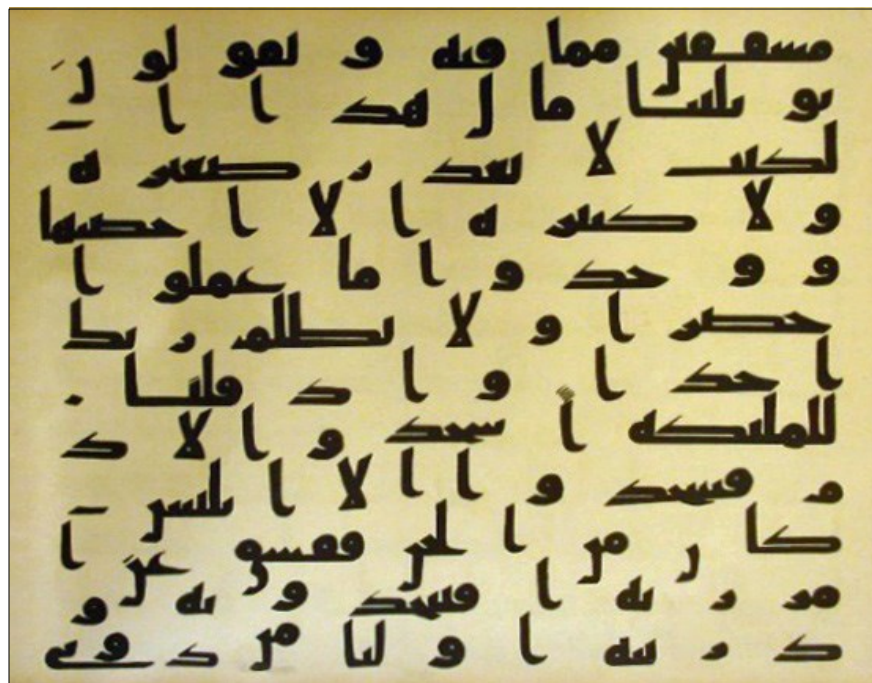 مشفقين مما فيه و يقولو ن
يو يلتنا ما ل هذ ا ا
لكتب لا يغد ر صغير ة
و لا كبير ة ا لا ا حصيها
و و جد و ا ما عملو ا
حضر ا و لا يظلم ر بك
ا حد ا و ا ذ قلنا
للمليكة ا سجد و ا لا د
م فسجد و ا ا لا ا بليس
كا ن من ا لجن ففسق عن ا
مر ر به ا فتتخذ و نه و
ذ ر يته ا و ليا من د و ني